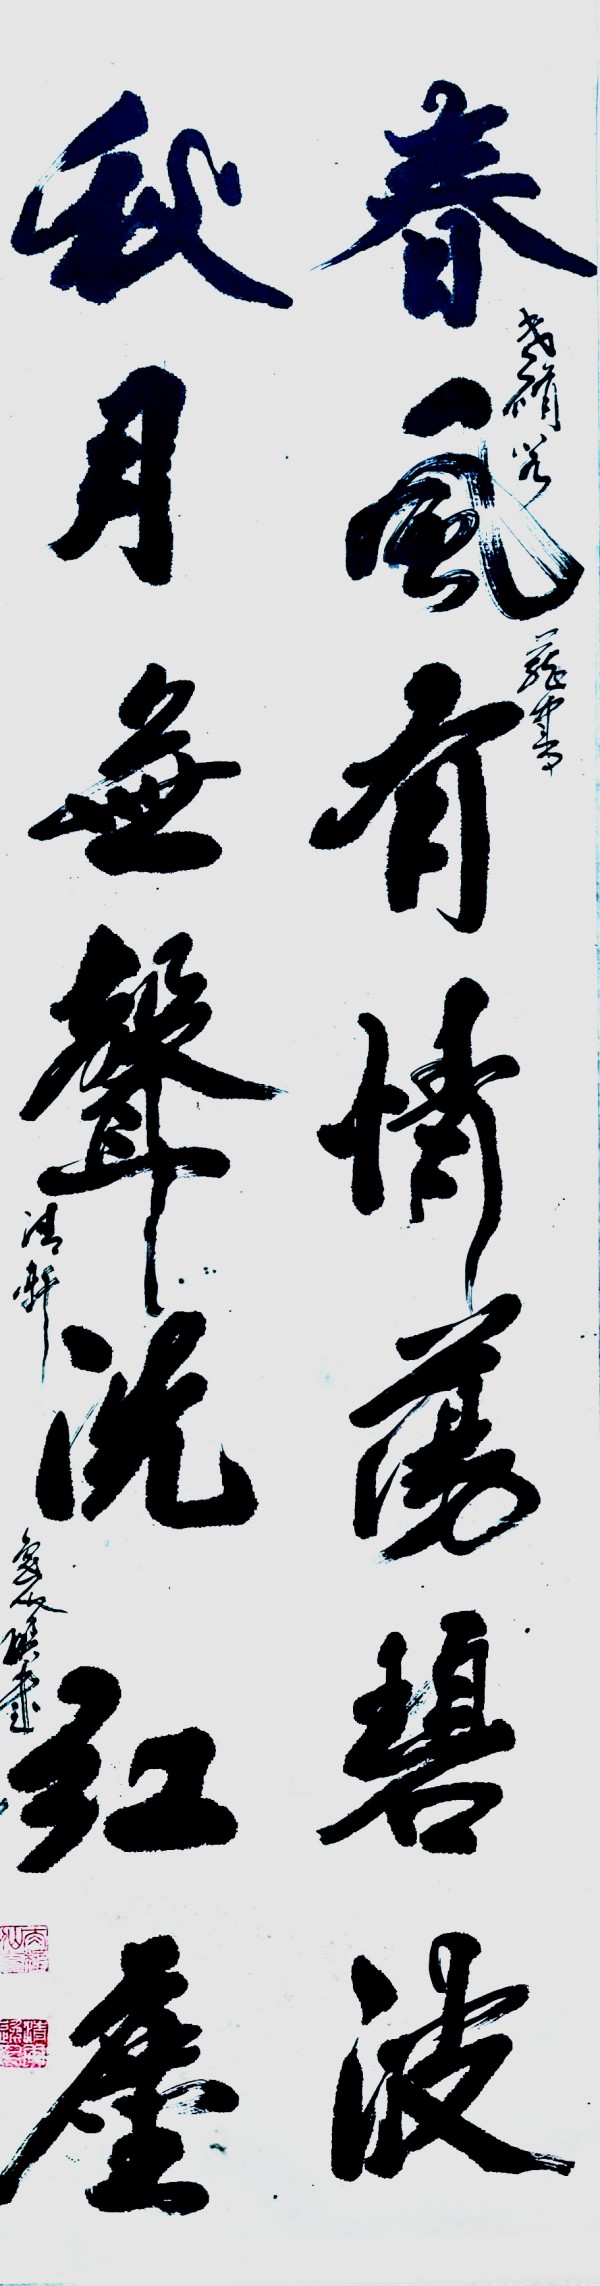 春風有情蕩碧波
秋月無聲洗紅塵
清軒